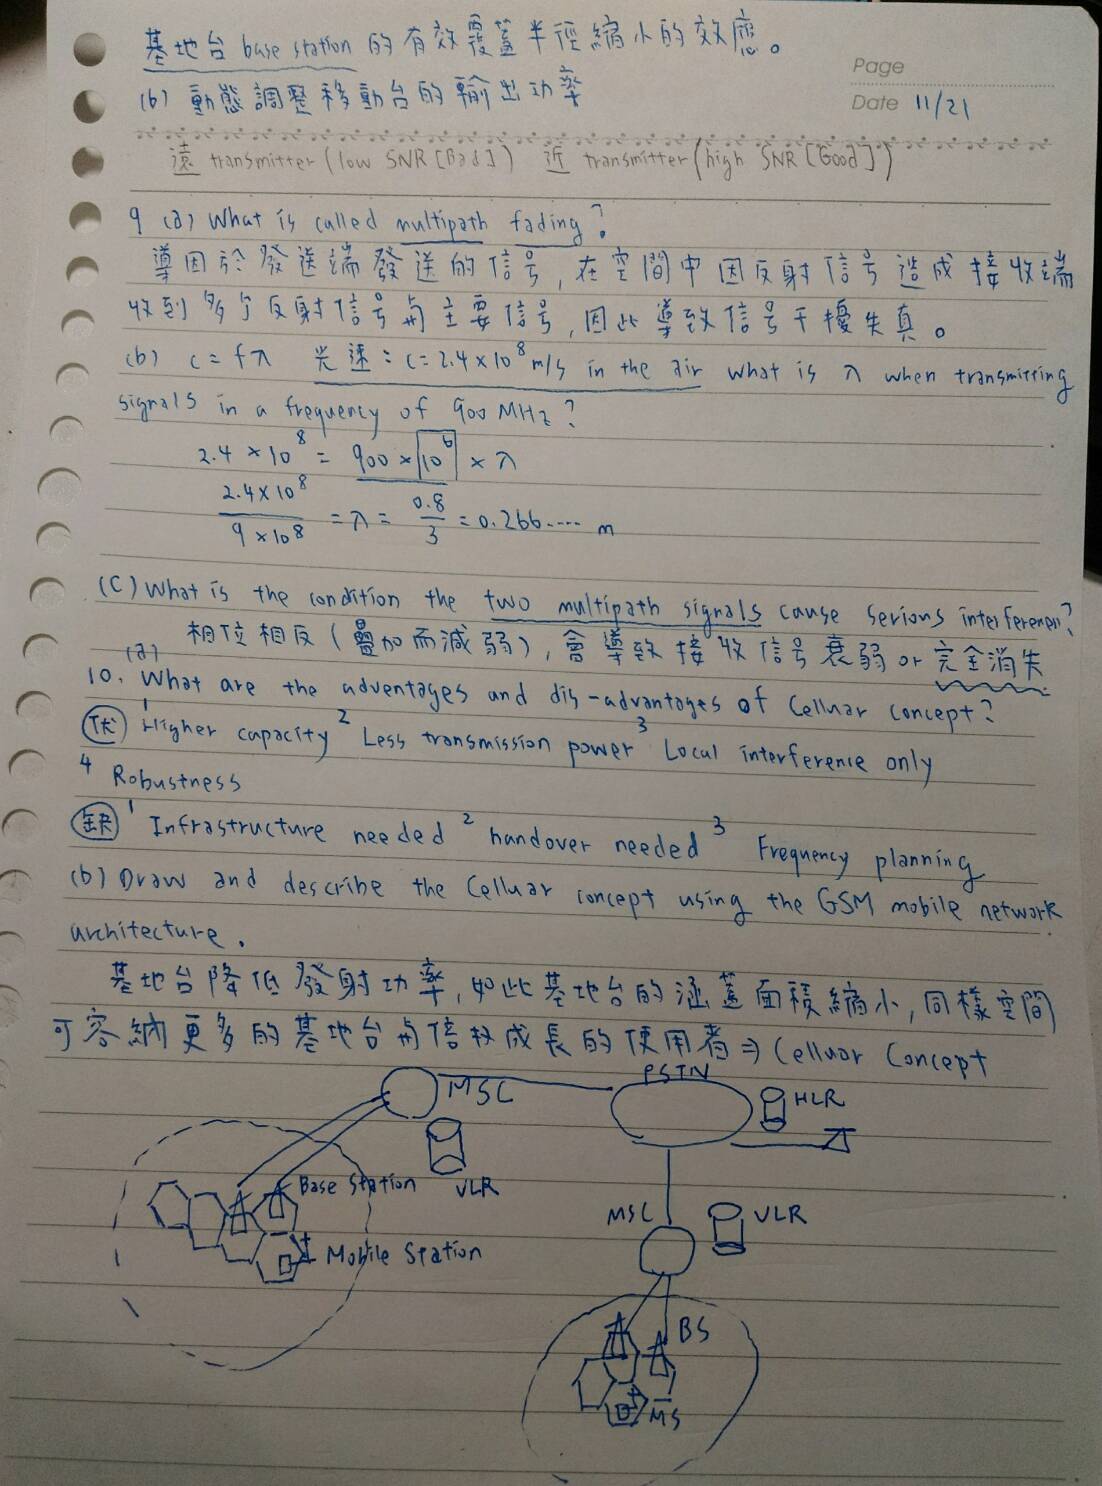 基地台 base station 的有效覆蓋半徑縮小的效應。
Page
(b) 動態調整移動台的輸出功率
Date 11/21
遠 transmitter (low SNR [Bad]) 近 transmitter (high SNR [Good])
9 (a) What is called multipath fading?
導因於發送端發送的信号,在空間中因反射信号造成接收端
收到多个反射信号与主要信号,因此導致信号干擾失真。
(b) c = fλ 光速:c=2.4×10⁸ m/s in the air what is λ when transmitting
signals in a frequency of 900 MHz?
2.4 × 10⁸ = 900 × 10⁶ × λ
2.4×10⁸ / 9×10⁸ = λ = 0.8/3 = 0.266..... m
(C) What is the condition the two multipath signals cause serious interferenen?
相位相反(疊加而減弱),會導致接收信号衰弱 or 完全消失
10. (a) What are the adventages and dis-advantages of Celluar concept?
優 1 Higher capacity 2 Less transmission power 3 Local interference only
4 Robustness
缺 1 Infrastructure needed 2 handover needed 3 Frequency planning
(b) Draw and describe the Celluar concept using the GSM mobile network
architecture.
基地台降低發射功率,如此基地台的涵蓋面積縮小,同樣空間
可容納更多的基地台与倍数成長的使用者 ⇒ Celluar Concept
MSC
PSTN
HLR
VLR
Base Station
Mobile Station
MSC
VLR
BS
MS